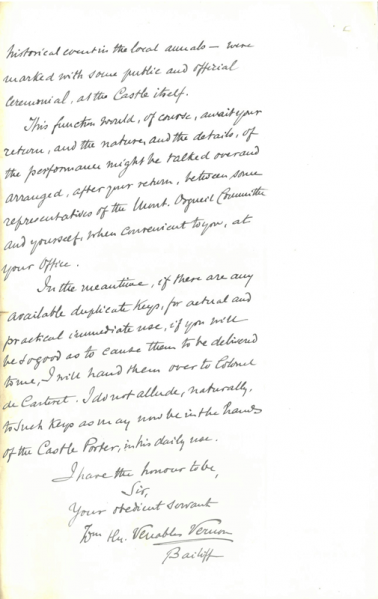 historical event in the local annals — were
marked with some public and official
ceremonial, at the Castle itself.
This function would, of course, await your
return, and the nature, and the details, of
the performance might be talked over and
arranged, after your return, between some
representatives of the Mont. Orgueil Committee
and yourself, when convenient to you, at
your Office.
In the meantime, if there are any
available duplicate Keys, for actual and
practical immediate use, if you will
be so good as to cause them to be delivered
to me, I will hand them over to Colonel
de Carteret. I do not allude, naturally,
to such Keys as may now be in the hands
of the Castle Porter, in his daily use.
I have the honour to be,
Sir,
Your obedient servant
Wm. Hy. Venables Vernon
Bailiff